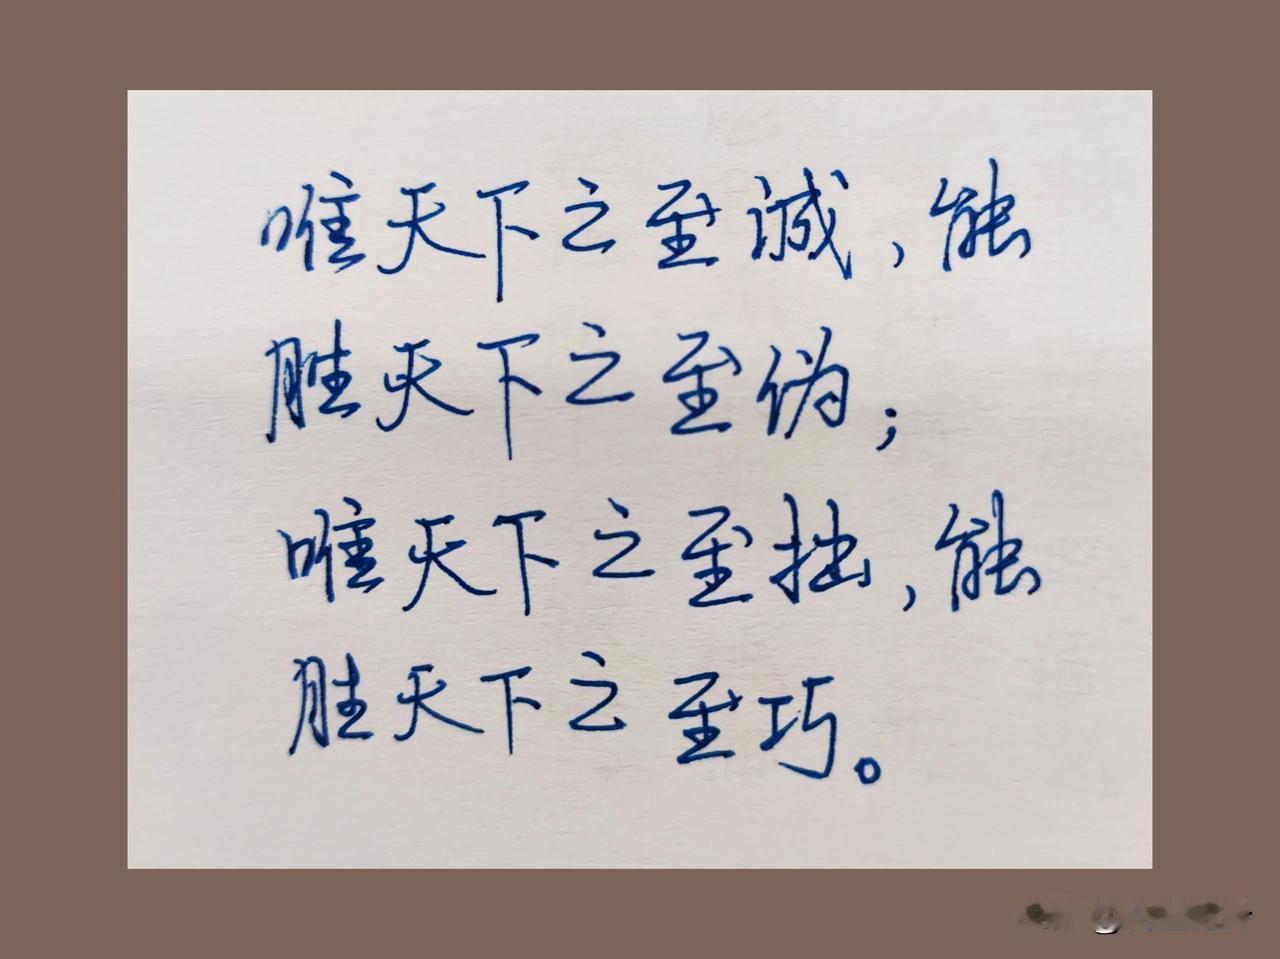 唯天下之至诚，能
胜天下之至伪；
唯天下之至拙，能
胜天下之至巧。